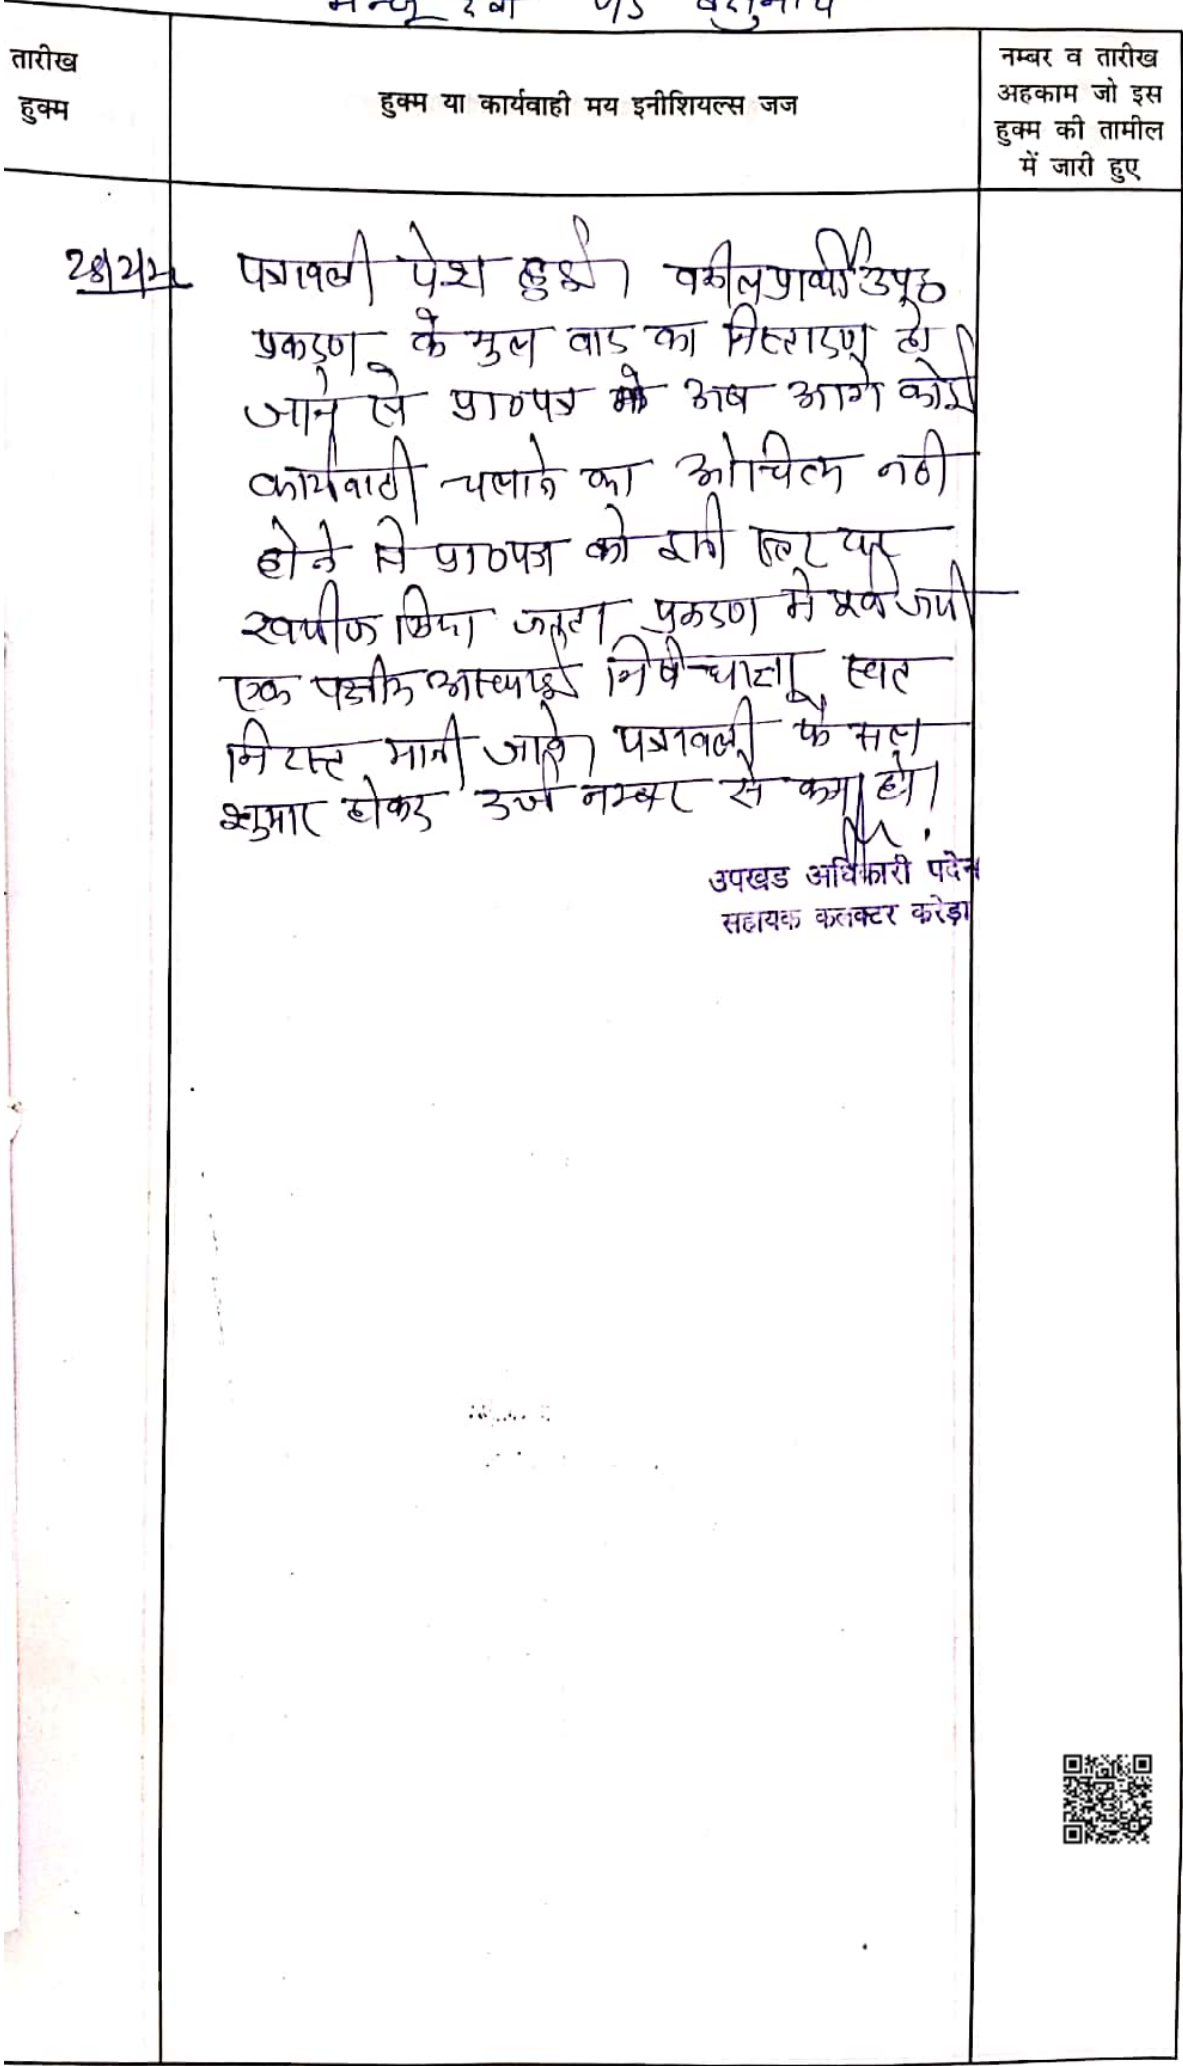 तारीख
हुक्म
हुक्म या कार्यवाही मय इनीशियल्स जज
नम्बर व तारीख
अहकाम जो इस
हुक्म की तामील
में जारी हुए
पत्रावली पेश हुई। वकील प्रार्थी उप०
प्रकरण के मुल वाद का निस्तारण हो
जाने से प्रा०पत्र मे अब आगे कोई
कार्यवाही चलाने का औचित्य नही
होने से प्रा०पत्र को इसी स्तर पर
खारीज किया जाता प्रकरण मे पूर्व जारी
एक पक्षीय अस्थाई निषेधाज्ञा स्वत
निरस्त मानी जावे। पत्रावली फैसल
शुमार होकर दर्ज नम्बर से कम हो।
उपखड अधिकारी पदेन
सहायक कलक्टर करेड़ा